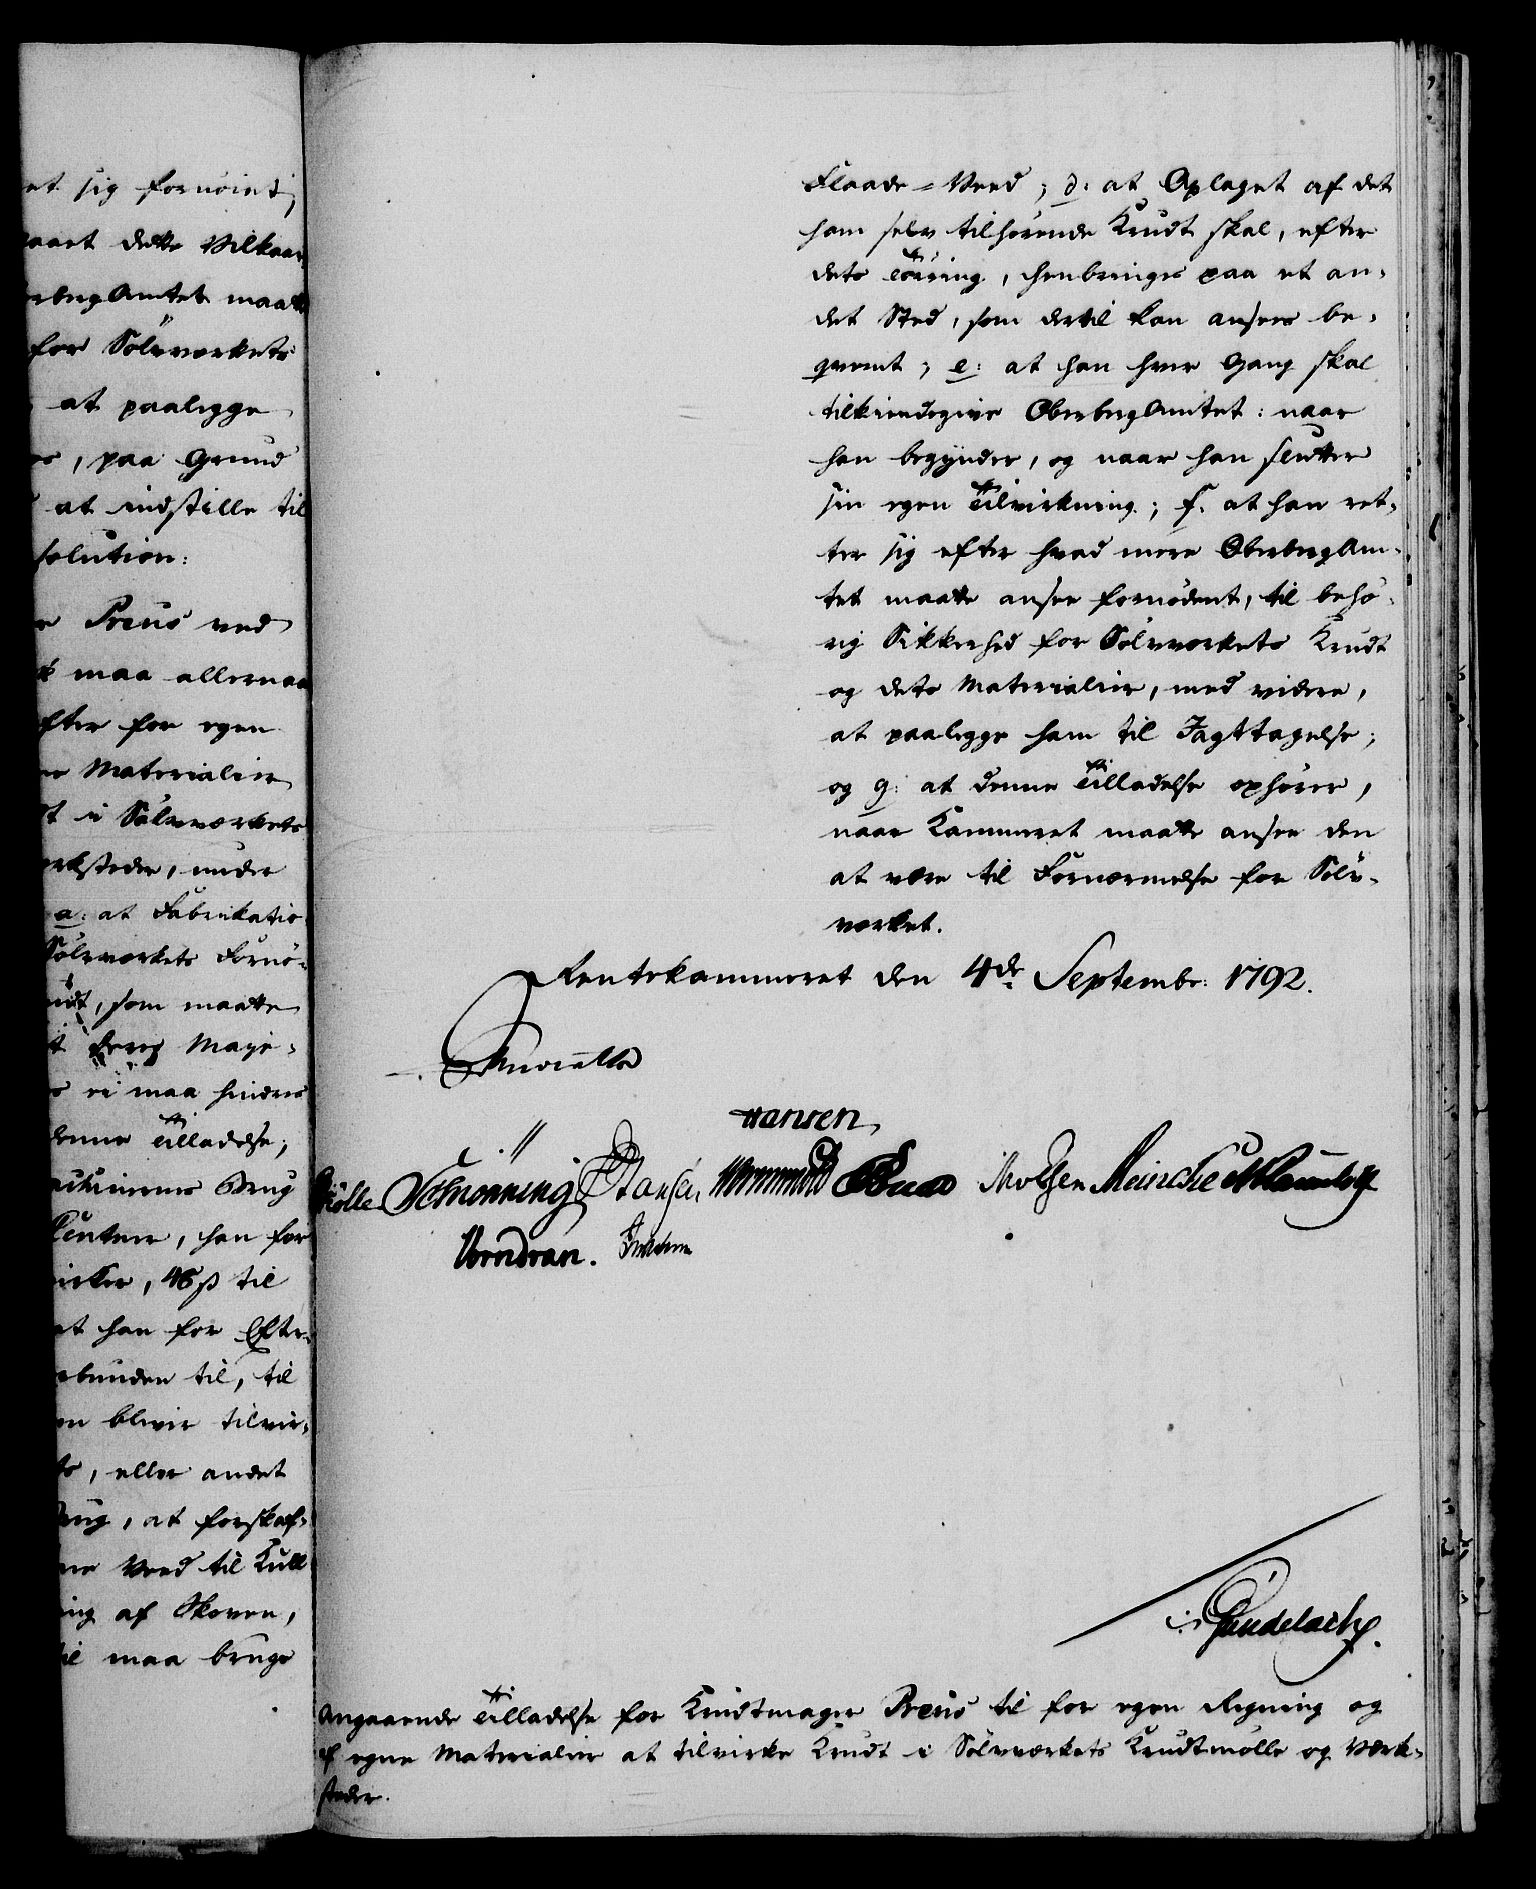 et sig fornöiet;
aaet dette Vilkaar
erbergAmtet maatte
for Sölvværkets
at paalegge
, paa Grund
at indstille til
solution:
Preus ved
maa allernaa
fter for egen
Materialier
t i Sölvværkets
erksteder, under
a: at Fabrikatio
Sölvværkets Fornö-
, som maatte
t Deres Maje-
ei maa hindres
denne Tilladelse;
achinernes Brug
Centner, han for
virker, 48 ß til
at han for Efter-
rbunden til, til
en bliver tilvir-
, eller andet
Brug, at forskaf-
ne Veed til Kull
ing af Skoven,
til maa bruge
Flaade-Veed; d: at Oplaget af det
ham selv tilhörende Krudt skal, efter
dets Törring, henbringes paa et an-
det Sted, som dertil kan ansees be-
qvemt; e: at han hver Gang skal
tilkiendegive OberbergAmtet: naar
han begynder, og naar han slutter
sin egen Tilvirkning; f. at han ret-
ter sig efter hvad mere OberbergAm-
tet maatte ansee fornödent, til behö-
rig Sikkerhed for Sölvværkets Krudt
og dets Materialier, med videre,
at paalegge ham til Iagttagelse;
og g: at denne Tilladelse ophörer,
naar Kammeret maatte ansee den
at være til Fornærmelse for Sölv-
værket.
Rentekammeret den 4de Septembr: 1792.
Hansen
Schiönning Wormskiold Moltzen Meincke
Vorndran.
Gundelach.
Angaaende Tilladelse for Krudtmager Preus til for egen Regning og
af egne Materialier at tilvirke Krudt i Sölvværkets Krudtmölle og Værk-
steder.